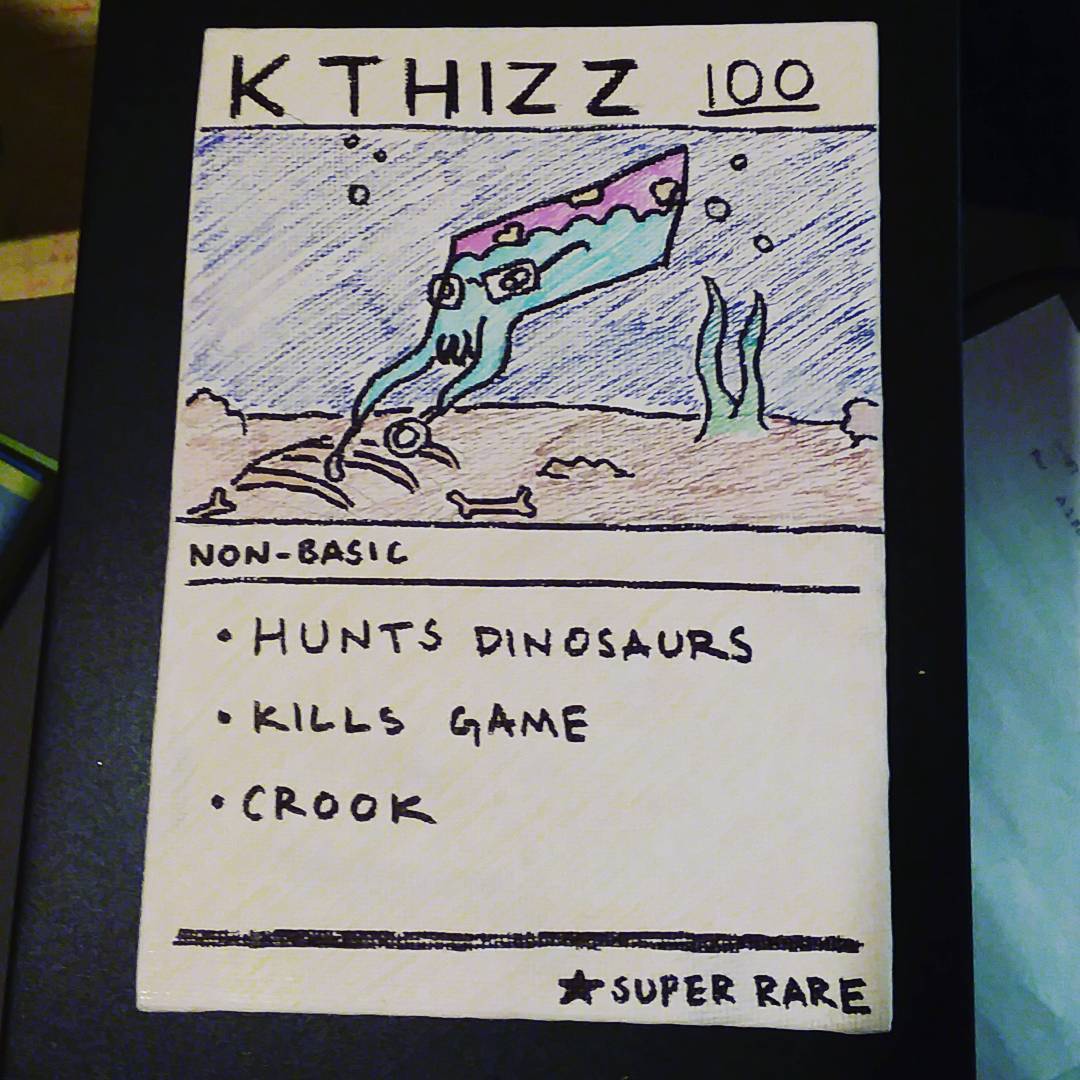 KTHIZZ 100
NON-BASIC
• HUNTS DINOSAURS
• KILLS GAME
• CROOK
★ SUPER RARE